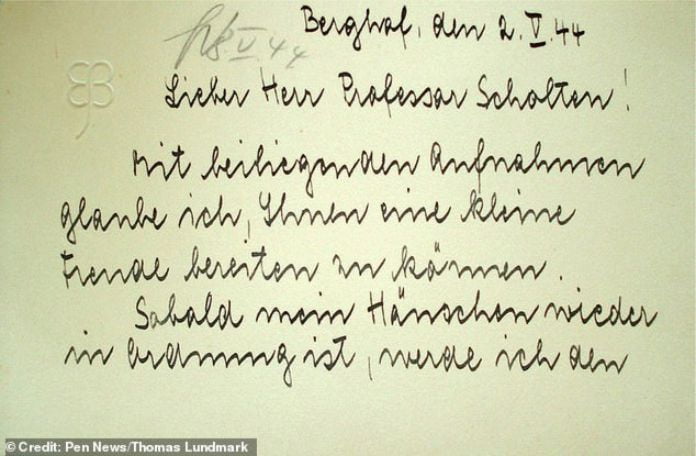 Berghof, den 2.V.44
V.44
Lieber Herr Professor Scholten!
Mit beiliegenden Aufnahmen
glaube ich, Ihnen eine kleine
Freude bereiten zu können.
Sobald mein Hänschen wieder
in Ordnung ist, werde ich den
© Credit: Pen News/Thomas Lundmark